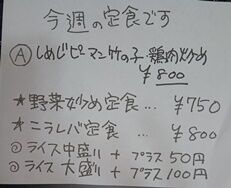 今週の定食です
Ⓐしめじピーマン竹の子・鶏肉炒め
¥800
★野菜炒め定食… ¥750
★ニラレバ定食… ¥800
◎ライス中盛り + プラス 50円
◎ライス大盛り + プラス 100円